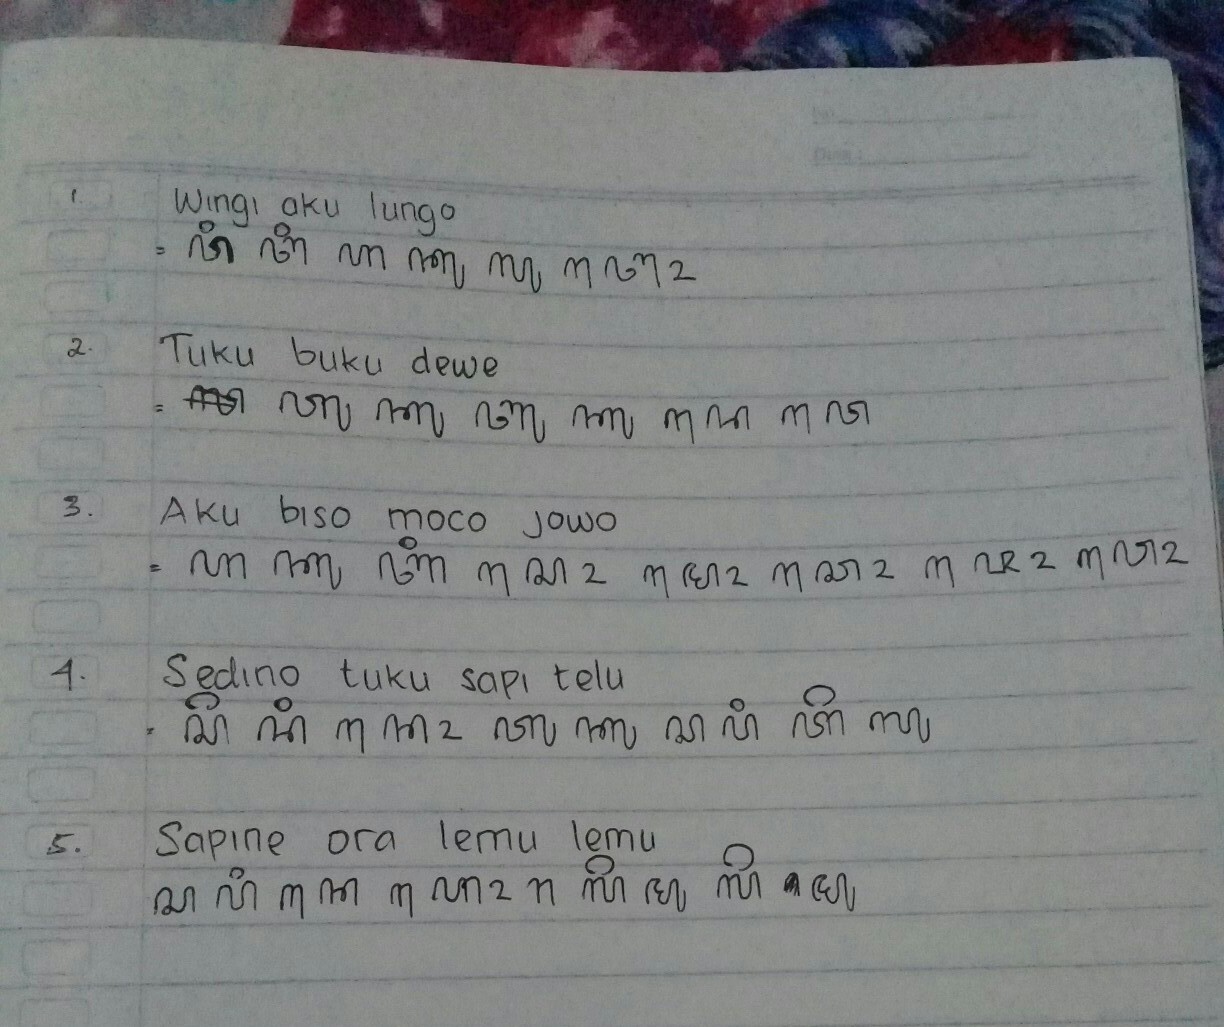 No.
Date :
1. Wingi aku lungo
= ꦮꦶ ꦔꦶ ꦲ ꦏꦸ ꦭꦸ ꦔꦺꦴ
2. Tuku buku dewe
= ꦠꦸ ꦏꦸ ꦧꦸ ꦏꦸ ꦢꦺ ꦮꦺ
3. Aku biso moco jowo
= ꦲ ꦏꦸ ꦧꦶ ꦱꦺꦴ ꦩꦺꦴ ꦕꦺꦴ ꦗꦺꦴ ꦮꦺꦴ
4. Sedino tuku sapi telu
= ꦱꦼ ꦢꦶ ꦤꦺꦴ ꦠꦸ ꦏꦸ ꦱ ꦥꦶ ꦠꦼ ꦭꦸ
5. Sapine ora lemu lemu
ꦱ ꦥꦶ ꦤꦺ ꦲꦺꦴ ꦫ ꦭꦼ ꦩꦸ ꦭꦼ ꦩꦸ